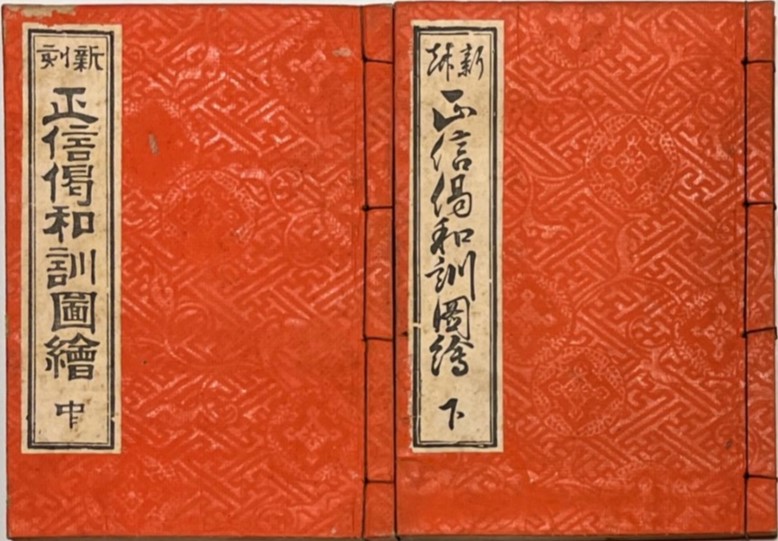 新刻
正信偈和訓圖繪
中
新刻
正信偈和訓圖繪
下